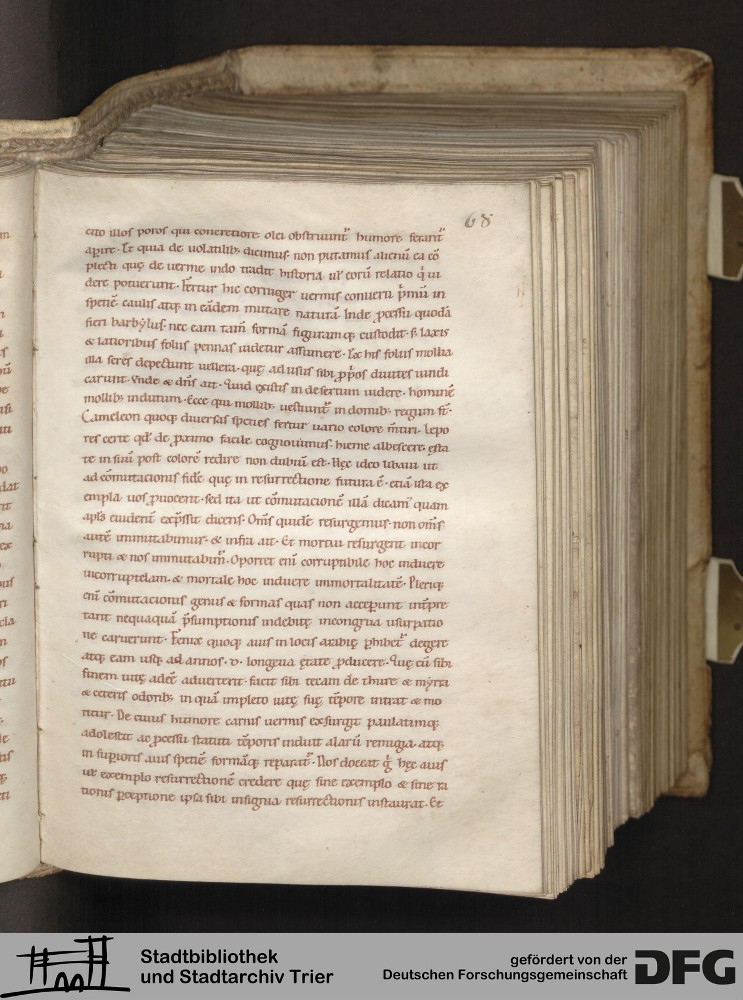 68
cito illos poros qui concretiore olei obstruunt᷑ humore ferant᷑
aꝑire. Et quia de uolatilib; dicimus. non putamus alienū ea cō
plecti quę de uerme indo tradit historia ul᷑ eorū relatio qͥ ui
dere potuerunt. Fertur hic corniger uermis conuerti pͥmū in
speciē caulis atq; in eādem mutare naturā. Inde ꝓcessu quodā
fieri barbẏlus. nec eam tam̄ formā figuramq; custodit. sꝫ laxis
& latioribus foliis pennas uidetur assumere. Ex his foliis mollia
illa seres depectunt uellera. quę ad usus sibi ꝓpͥos diuites uindi
carunt. Vnde & dn̄s ait. Quid existis in desertum uidere. hominē
mollib; indutum. Ecce qui mollib; uestiunt᷑ in domib; regum st̄.
Cameleon quoq; diuersas species fertur uario colore m̄tiri. Lepo
res certe qd̄ de ꝓximo facile cognouimus. hieme albescere. ęsta
te in suū post colorē redire non dubiū est. Hęc ideo libaui ut
ad cōmutacionis fidē quę in resurrectione futura ē. etiā ista ex
empla uos ꝓuocent. sed ita ut cōmutacionē illā dicam᷒ quam
apl̄s euident̄ exp̄ssit dicens. Om̄s quidē resurgemus. non om̄s
autē immutabimur. & infra ait. Et mortui resurgent incor
rupti & nos immutabim᷒. Oportet enī corruptibile hoc induere
incorruptelam. & mortale hoc induere immortalitatē. Pleriq;
enī cōmutacionis genus & formas quas non acceꝑunt int̄pre
tant nequaquā p̄sumptionis indebitę incongrua usurpatio
ne caruerunt. Fenix quoq; auis in locis arabię ꝑhibet᷑ degere
atq; eam usq; ad annos .v. longeua ętate ꝓducere. Quę cū sibi
finem uitę adeē aduerterit. facit sibi tecam de thure & myrra
& ceteris odorib; in quā impleto uitę suę tēpore intrat & mo
ritur. De cuius humore carnis uermis exsurgit paulatimq;
adolescit ac ꝓcessu statuti tēporis induit alarū remigia. atq;
in suꝑioris auis speciē formāq; reparat᷑. Nos doceat gͥ hęc auis
uel exemplo resurrectionē credere quę sine exemplo & sine ra
tionis ꝑceptione ipsa sibi insignia resurrectionis instaurat. Et
Stadtbibliothek
und Stadtarchiv Trier
gefördert von der
Deutschen Forschungsgemeinschaft
DFG